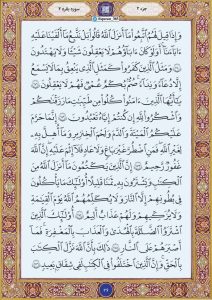 جزء ۲
سوره بقره ۲
وَإِذَا قِيلَ لَهُمُ ٱتَّبِعُوا۟ مَآ أَنزَلَ ٱللَّهُ قَالُوا۟ بَلْ نَتَّبِعُ مَآ أَلْفَيْنَا عَلَيْهِ
ءَابَآءَنَآ أَوَلَوْ كَانَ ءَابَآؤُهُمْ لَا يَعْقِلُونَ شَيْـًٔا وَلَا يَهْتَدُونَ
۝ وَمَثَلُ ٱلَّذِينَ كَفَرُوا۟ كَمَثَلِ ٱلَّذِى يَنْعِقُ بِمَا لَا يَسْمَعُ
إِلَّا دُعَآءً وَنِدَآءً صُمٌّۢ بُكْمٌ عُمْىٌ فَهُمْ لَا يَعْقِلُونَ ۝
يَـٰٓأَيُّهَا ٱلَّذِينَ ءَامَنُوا۟ كُلُوا۟ مِن طَيِّبَـٰتِ مَا رَزَقْنَـٰكُمْ
وَٱشْكُرُوا۟ لِلَّهِ إِن كُنتُمْ إِيَّاهُ تَعْبُدُونَ ۝ إِنَّمَا حَرَّمَ
عَلَيْكُمُ ٱلْمَيْتَةَ وَٱلدَّمَ وَلَحْمَ ٱلْخِنزِيرِ وَمَآ أُهِلَّ بِهِۦ
لِغَيْرِ ٱللَّهِ فَمَنِ ٱضْطُرَّ غَيْرَ بَاغٍ وَلَا عَادٍ فَلَآ إِثْمَ عَلَيْهِ إِنَّ ٱللَّهَ
غَفُورٌ رَّحِيمٌ ۝ إِنَّ ٱلَّذِينَ يَكْتُمُونَ مَآ أَنزَلَ ٱللَّهُ مِنَ
ٱلْكِتَـٰبِ وَيَشْتَرُونَ بِهِۦ ثَمَنًا قَلِيلًا أُو۟لَـٰٓئِكَ مَا يَأْكُلُونَ
فِى بُطُونِهِمْ إِلَّا ٱلنَّارَ وَلَا يُكَلِّمُهُمُ ٱللَّهُ يَوْمَ ٱلْقِيَـٰمَةِ
وَلَا يُزَكِّيهِمْ وَلَهُمْ عَذَابٌ أَلِيمٌ ۝ أُو۟لَـٰٓئِكَ ٱلَّذِينَ
ٱشْتَرَوُا۟ ٱلضَّلَـٰلَةَ بِٱلْهُدَىٰ وَٱلْعَذَابَ بِٱلْمَغْفِرَةِ فَمَآ
أَصْبَرَهُمْ عَلَى ٱلنَّارِ ۝ ذَٰلِكَ بِأَنَّ ٱللَّهَ نَزَّلَ ٱلْكِتَـٰبَ
بِٱلْحَقِّ وَإِنَّ ٱلَّذِينَ ٱخْتَلَفُوا۟ فِى ٱلْكِتَـٰبِ لَفِى شِقَاقٍۭ بَعِيدٍ ۝
۲۶